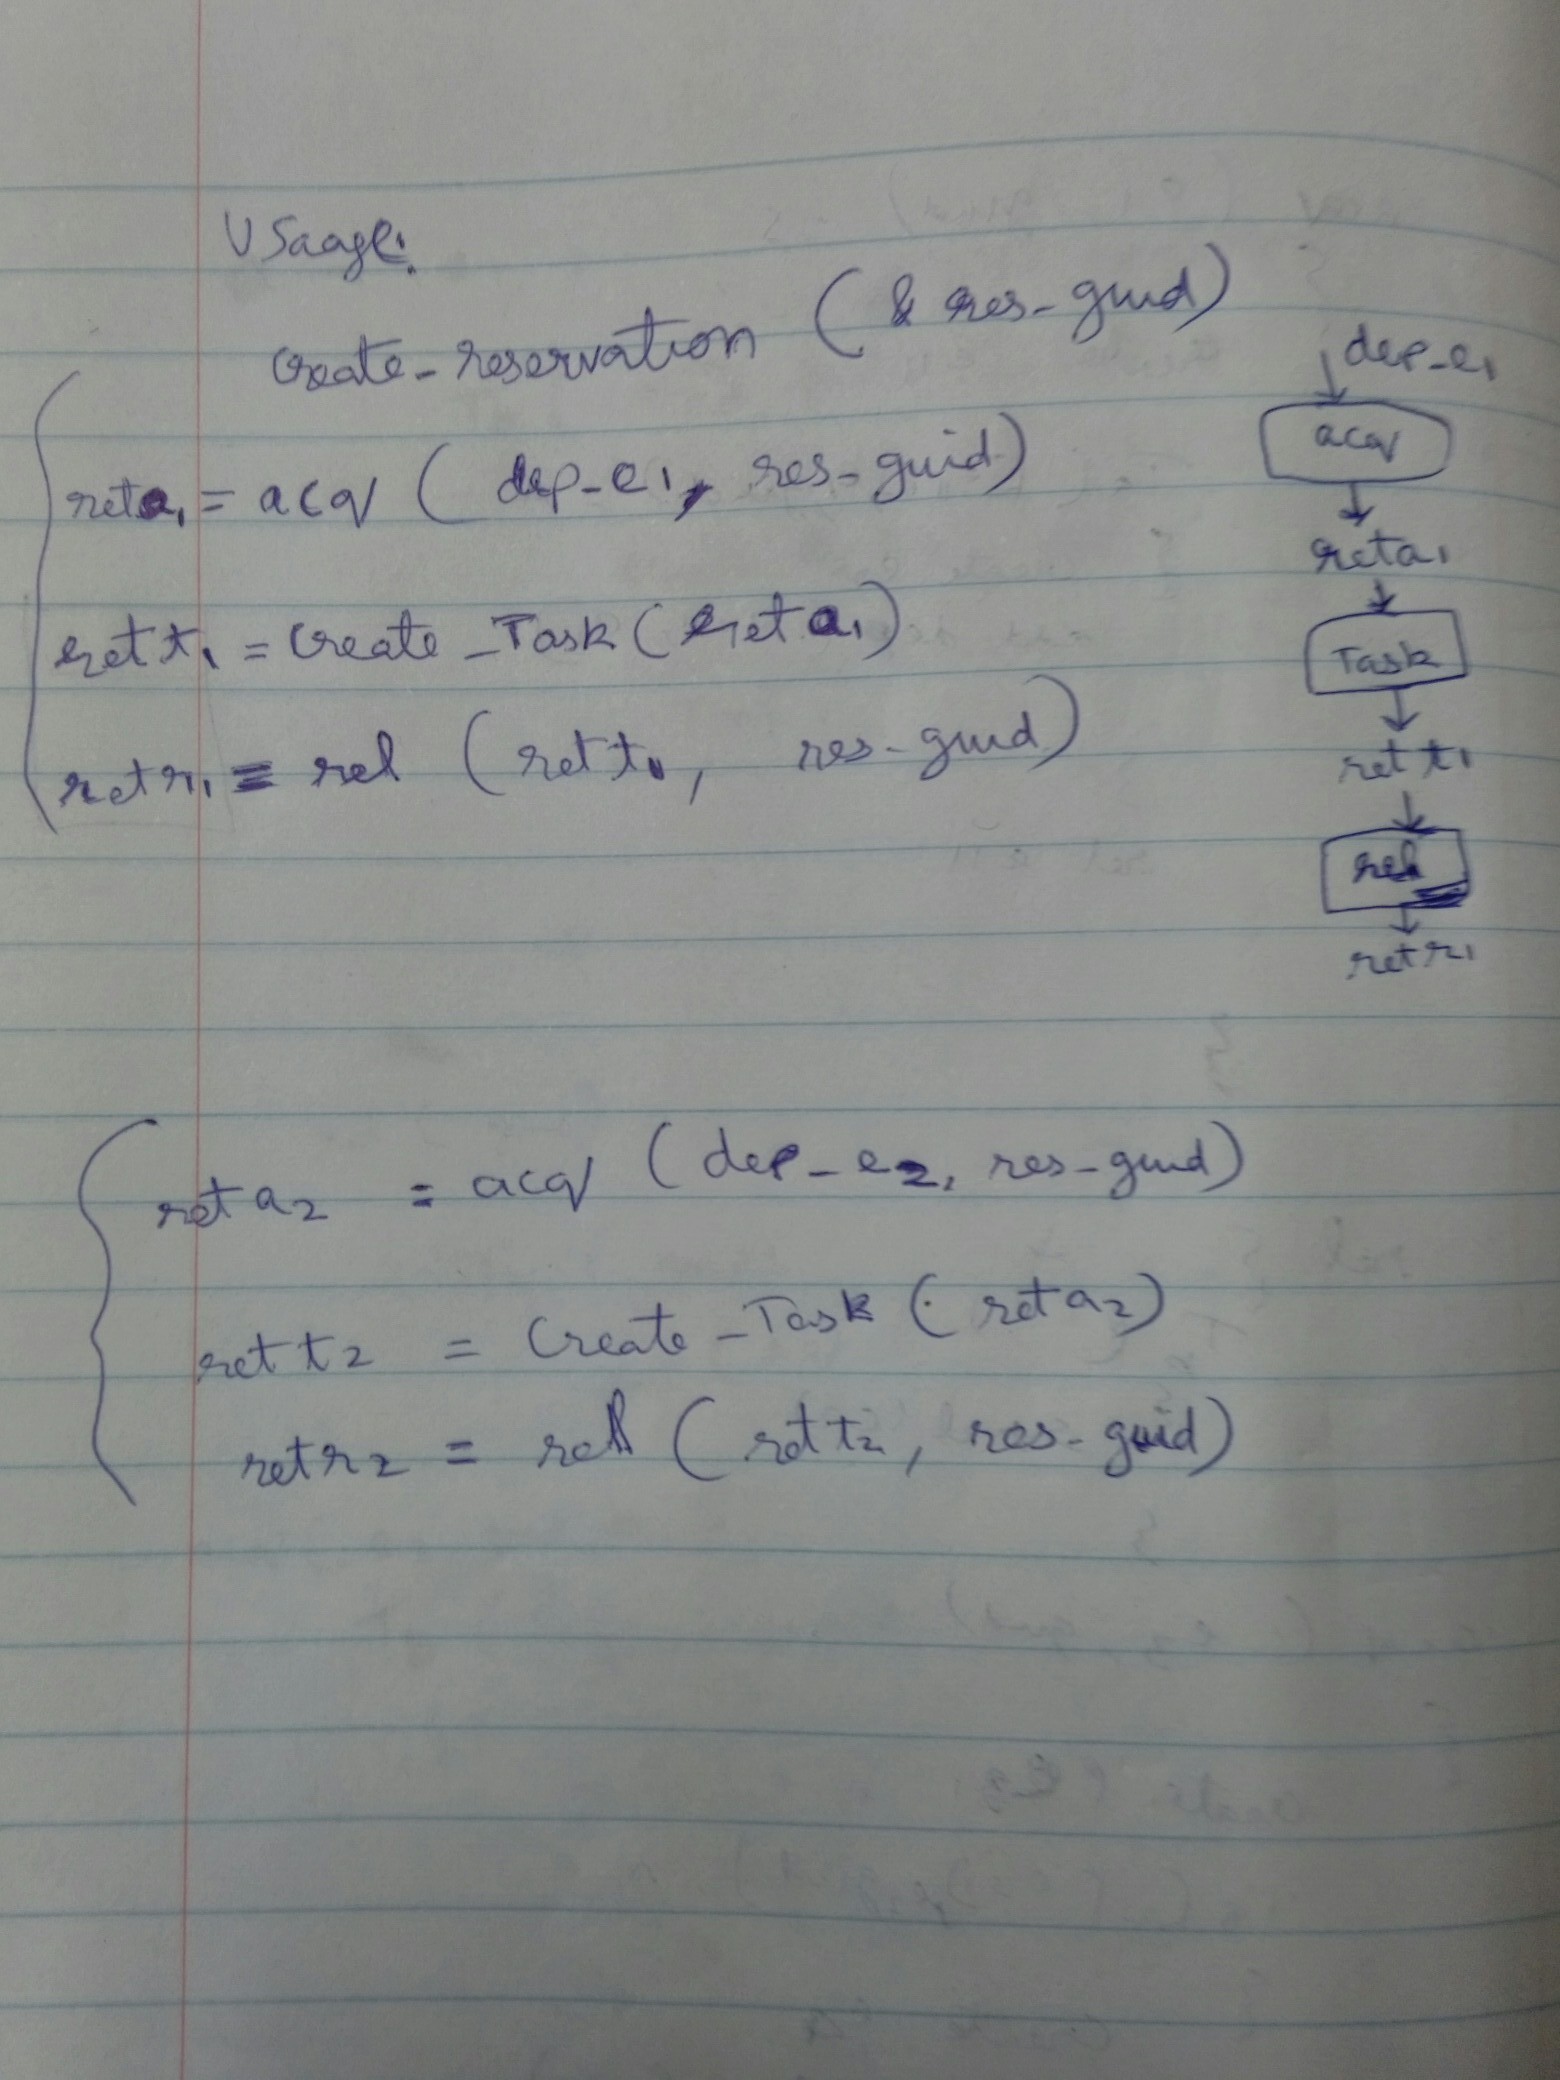 USaage:
create-reservation (& res-guid)
reta1 = acq (dep-e1, res-guid)
rett1 = Create_Task (reta1)
retr1 = rel (rett1, res-guid)
dep-e1
acq
reta1
Task
rett1
rel
retr1
reta2 = acq (dep-e2, res-guid)
rett2 = Create_Task (reta2)
retr2 = rel (rett2, res-guid)